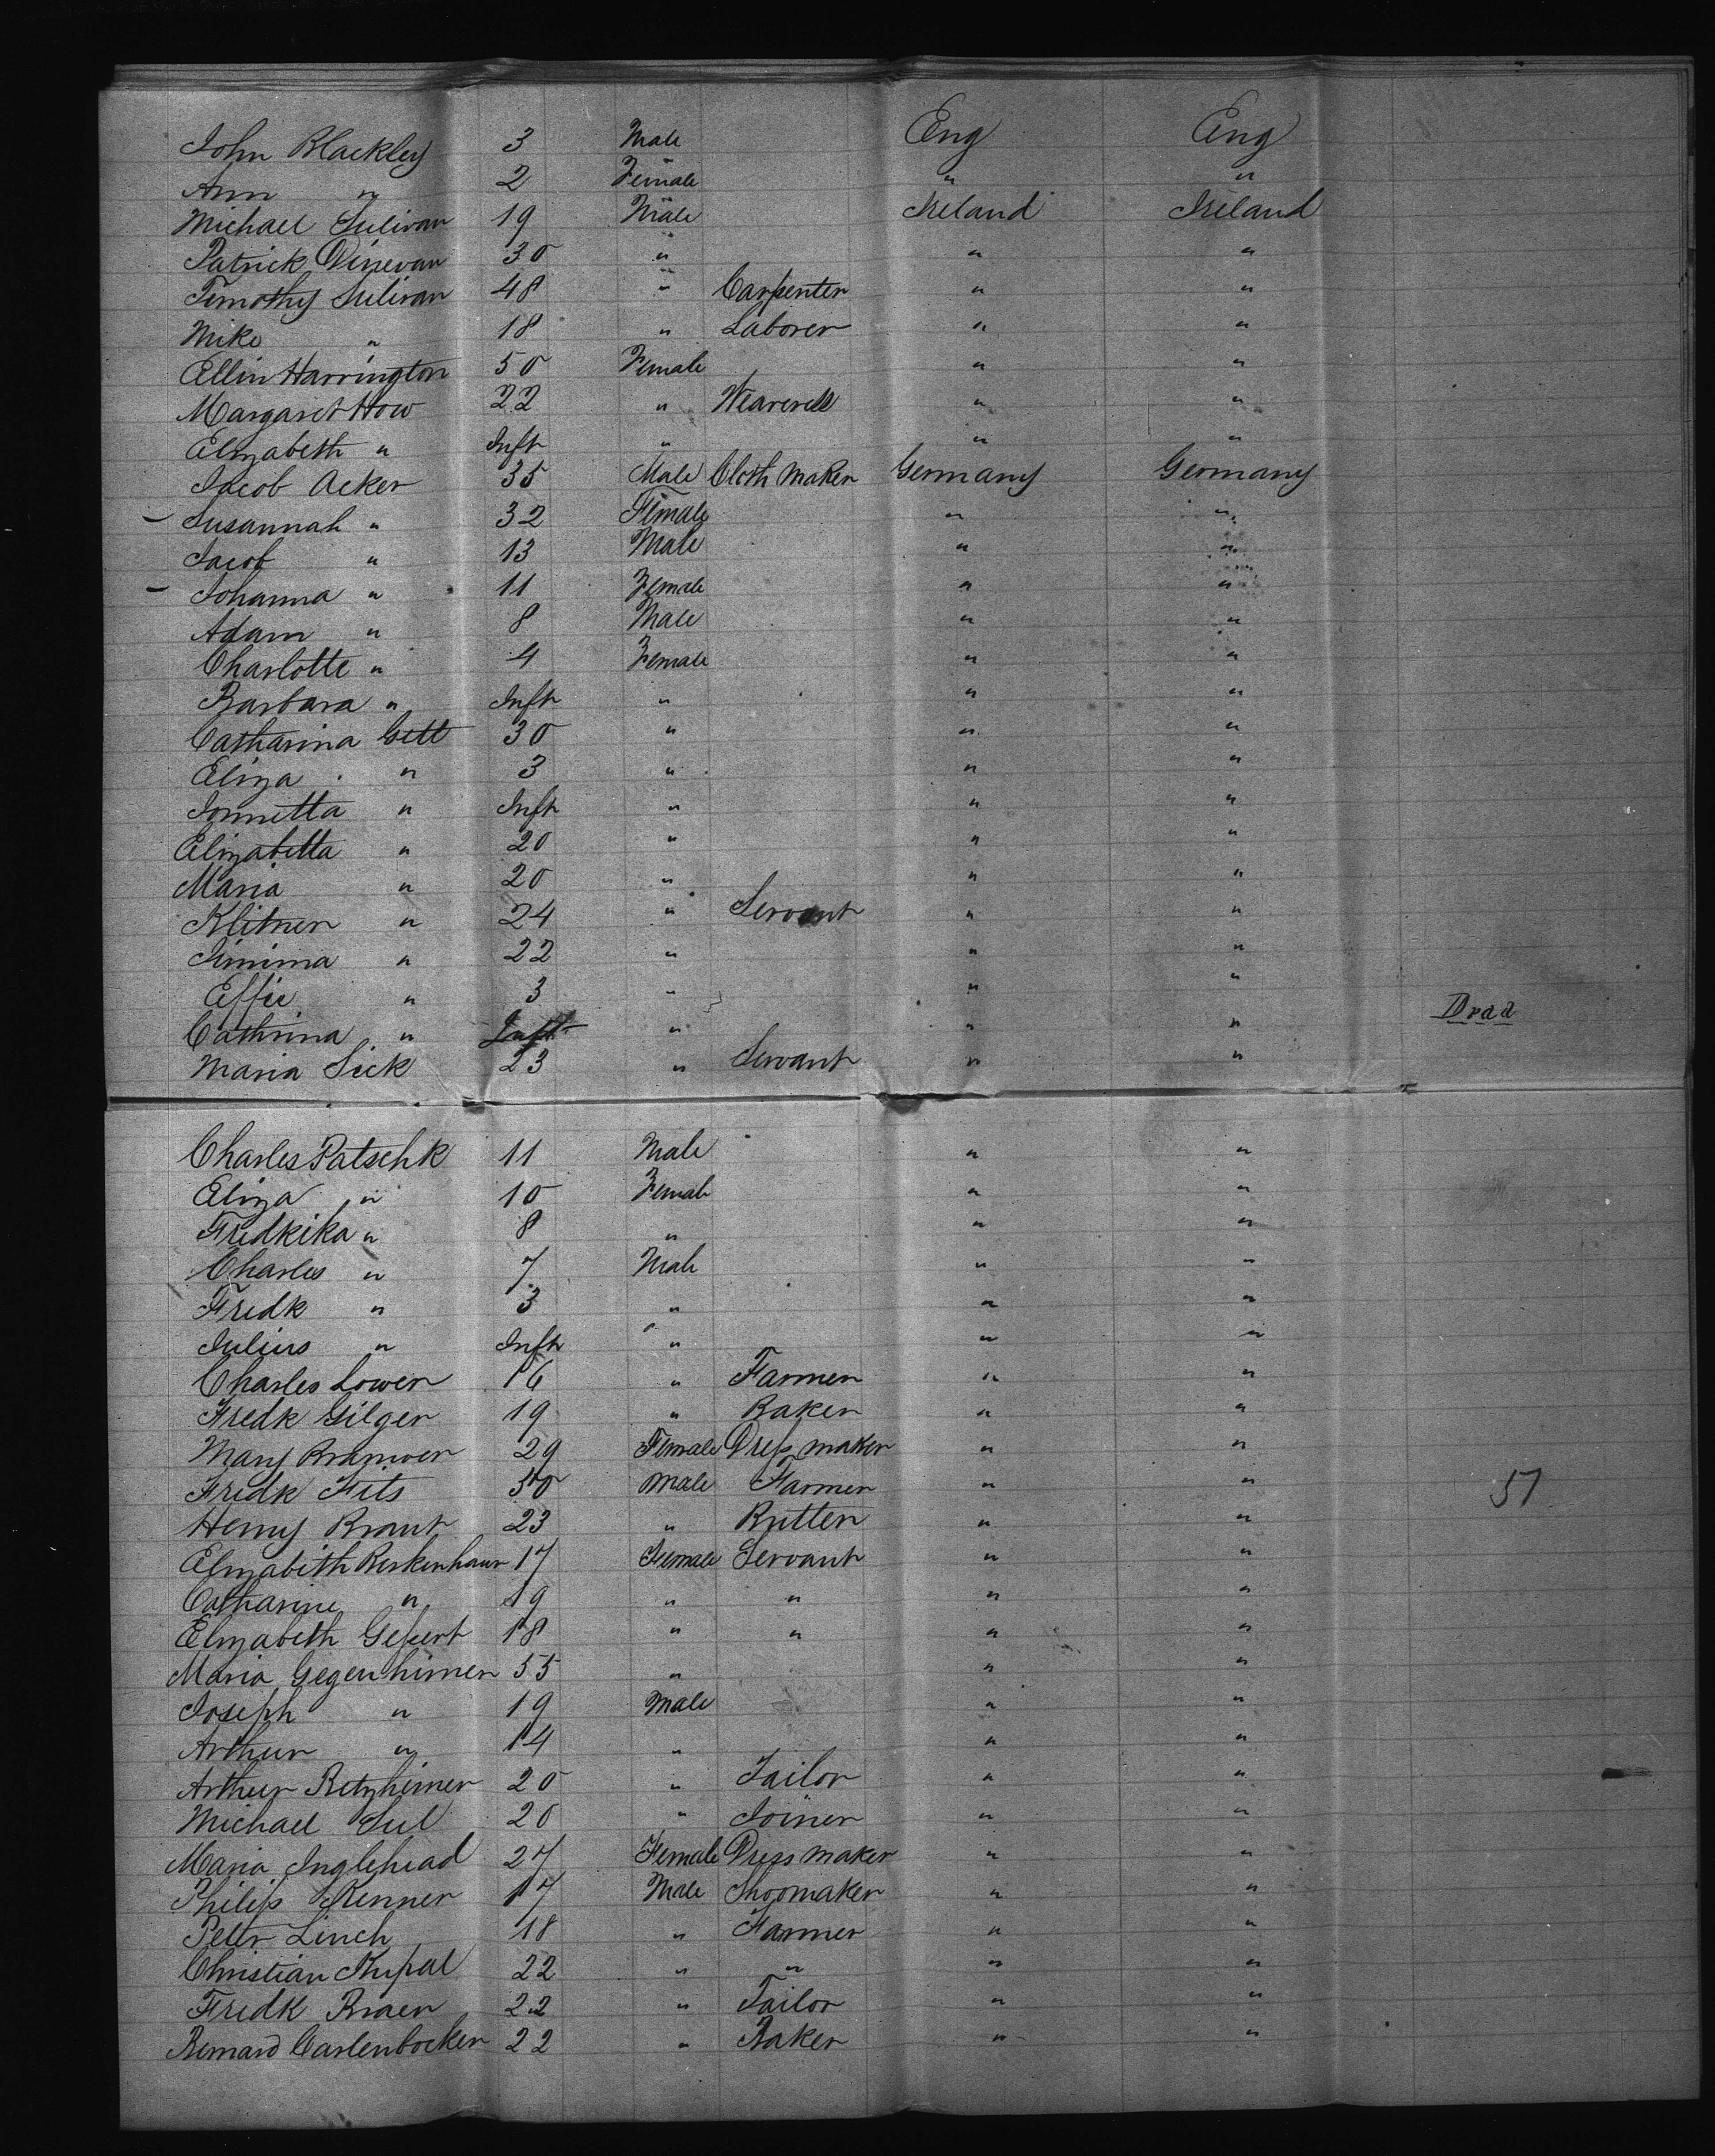 John Blackley 3 Male Eng Eng
Ann " 2 Female " "
Michael Sulivan 19 Male Ireland Ireland
Patrick Dinevan 30 " " "
Timothy Sulivan 48 " Carpenter " "
Mike " 18 " Laborer " "
Ellin Harrington 50 Female " "
Margaret How 22 " " "
Elizabeth " Inft " " "
Jacob Acker 35 Male Cloth Maker Germany Germany
Susannah " 32 Female " "
Jacob " 13 Male " "
Johanna " 11 Female " "
Adam " 8 Male " "
Charlotte " 4 Female " "
Barbara " Inft " " "
Catharina Gett 30 " " "
Eliza " 3 " " "
" Inft " " "
Elizabetta " 20 " " "
Maria " 20 " " "
" 24 " Servant " "
Jimima " 22 " " "
Effie " 3 " " "
Cathrina " Inft " " " Dead
Maria Sick 23 " Servant " "
Charles Patschk 11 Male " "
Eliza " 10 Female " "
Fredkika " 8 " " "
Charles " 7 Male " "
Fredk " 3 " " "
Julius " Inft " " "
Charles Lower 16 " Farmer " "
Fredk Gilger 19 " Baker " "
Mary 29 Female Dress maker " "
Fredk Fits 50 Male Farmer " " 57
Henry Braut 23 " " "
Elizabeth 17 Female Servant " "
Catharine " 19 " " " "
Elizabeth Gefert 18 " " " "
Maria Gegenhimer 55 " " "
Joseph " 19 Male " "
Arthur " 14 " " "
Arthur Retzhimer 20 " Tailor " "
Michael Sul 20 " Joiner " "
Maria Inglehead 27 Female Dress maker " "
Philip Renner 17 Male Shoomaker " "
Peter Linch 18 " Farmer " "
Christian 22 " " " "
Fredk Braer 22 " Tailor " "
Bernard Carlenbocker 22 " Baker " "